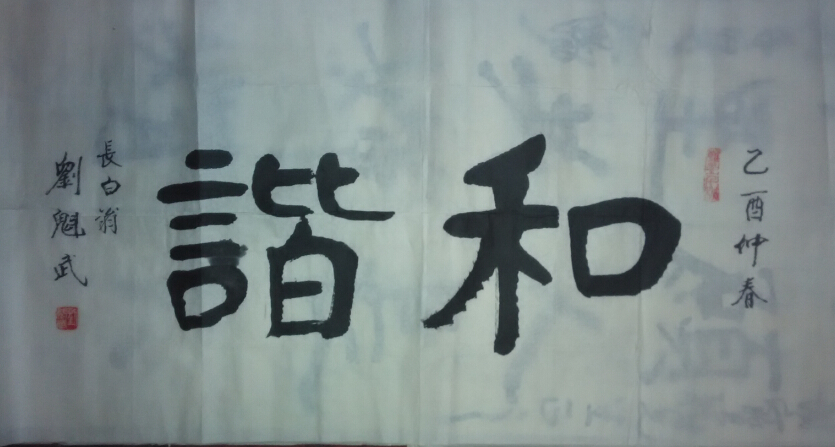 乙酉仲春
和諧
長白翁
劉魁武